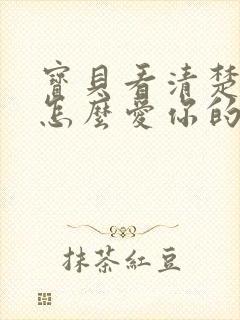 寶貝看清楚
怎麼愛你的
抹茶紅豆